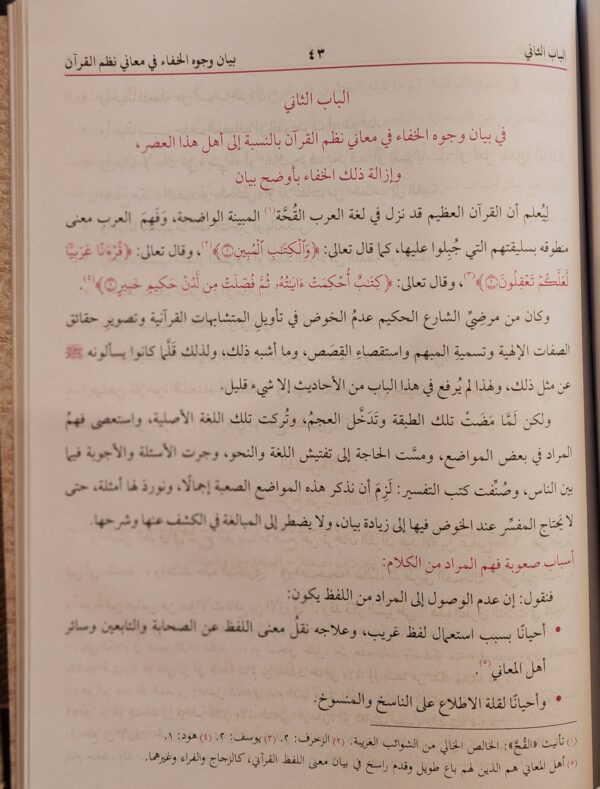 الباب الثاني ٤٣ بيان وجوه الخفاء في معاني نظم القرآن
الباب الثاني
في بيان وجوه الخفاء في معاني نظم القرآن بالنسبة إلى أهل هذا العصر،
وإزالة ذلك الخفاء بأوضح بيان
لِيُعلم أن القرآن العظيم قد نزل في لغة العرب القُحَّة(١) المبينة الواضحة، وَفَهِمَ العرب معنى
منطوقه بسليقتهم التي جُبِلوا عليها، كما قال تعالى: ﴿وَٱلْكِتَٰبِ ٱلْمُبِينِ ۝٢﴾(٢)، وقال تعالى: ﴿قُرْءَٰنًا عَرَبِيًّا
لَّعَلَّكُمْ تَعْقِلُونَ ۝٢﴾(٣)، وقال تعالى: ﴿كِتَٰبٌ أُحْكِمَتْ ءَايَٰتُهُۥ ثُمَّ فُصِّلَتْ مِن لَّدُنْ حَكِيمٍ خَبِيرٍ ۝١﴾(٤).
وكان من مرضِيِّ الشارع الحكيم عدمُ الخوض في تأويل المتشابهات القرآنية وتصويرِ حقائق
الصفات الإلهية وتسميةِ المبهم واستقصاءِ القِصَص، وما أشبه ذلك، ولذلك قَلَّما كانوا يسألونه ﷺ
عن مثل ذلك، ولهذا لم يُرفع في هذا الباب من الأحاديث إلا شيء قليل.
ولكن لَمَّا مَضَتْ تلك الطبقة وتَدَخَّل العجمُ، وتُركت تلك اللغة الأصلية، واستعصى فهمُ
المراد في بعض المواضع، ومسَّت الحاجة إلى تفتيش اللغة والنحو، وجرت الأسئلة والأجوبة فيما
بين الناس، وصُنِّفت كتب التفسير: لَزِمَ أن نذكر هذه المواضع الصعبة إجمالًا، ونوردَ لها أمثلة، حتى
لا يَحتاج المفسِّر عند الخوض فيها إلى زيادة بيان، ولا يضطر إلى المبالغة في الكشف عنها وشرحها.
أسباب صعوبة فهم المراد من الكلام:
فنقول: إن عدم الوصول إلى المراد من اللفظ يكون:
• أحيانًا بسبب استعمال لفظ غريب، وعلاجه نقلُ معنى اللفظ عن الصحابة والتابعين وسائر
أهل المعاني(٥).
• وأحيانًا لقلة الاطلاع على الناسخ والمنسوخ.
(١) تأنيث «القُحّ»: الخالص الخالي من الشوائب الغريبة. (٢) الزخرف: ٢. (٣) يوسف: ٢. (٤) هود: ١.
(٥) أهل المعاني هم الذين لهم باع طويل وقدم راسخ في بيان معنى اللفظ القرآني، كالزجاج والفراء وغيرهما.